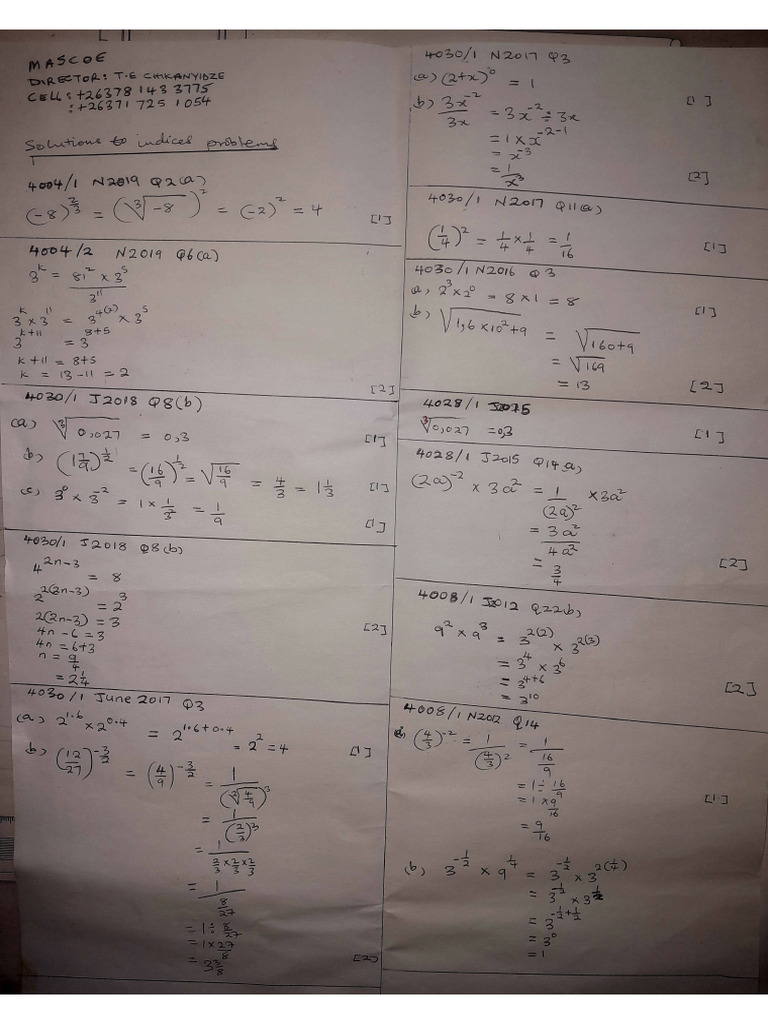 MASCOE
DIRECTOR: T.E CHIKANYIDZE
CELL: +26378 143 3775
: +26371 725 1054
Solutions to indices problems
4004/1 N2019 Q2(a)
(-8)^(2/3) = (∛-8)² = (-2)² = 4 [1]
4004/2 N2019 Q6(a)
3^k = (81² × 3⁵)/3¹¹
3^k × 3¹¹ = 3^(4(2)) × 3⁵
3^(k+11) = 3^(8+5)
k+11 = 8+5
k = 13-11 = 2 [2]
4030/1 J2018 Q8(b)
(a) ∛0,027 = 0,3 [1]
b) (1 7/9)^(1/2) = (16/9)^(1/2) = √(16/9) = 4/3 = 1 1/3 [1]
c) 3⁰ × 3⁻² = 1 × 1/3² = 1/9 [1]
4030/1 J2018 Q8(b)
4^(2n-3) = 8
2^(2(2n-3)) = 2³
2(2n-3) = 3
4n - 6 = 3
4n = 6+3
n = 9/4
= 2 1/4 [2]
4030/1 June 2017 Q3
(a) 2^1.6 × 2^0.4 = 2^(1.6+0.4) = 2² = 4 [1]
b) (12/27)^(-3/2) = (4/9)^(-3/2) = 1/(²√(4/9))³
= 1/(2/3)³
= 1/(2/3 × 2/3 × 2/3)
= 1/(8/27)
= 1 ÷ 8/27
= 1 × 27/8
= 3 3/8 [2]
4030/1 N2017 Q3
(a) (2+x)⁰ = 1 [1]
b) 3x⁻²/3x = 3x⁻² ÷ 3x
= 1 × x^(-2-1)
= x⁻³
= 1/x³ [2]
4030/1 N2017 Q11(a)
(1/4)² = 1/4 × 1/4 = 1/16 [1]
4030/1 N2016 Q3
a, 2³ × 2⁰ = 8 × 1 = 8 [1]
b) √(1,6 × 10² + 9) = √(160+9)
= √169
= 13 [2]
4028/1
∛0,027 = 0,3 [1]
4028/1 J2015 Q14,a,
(2a)⁻² × 3a² = 1/(2a)² × 3a²
= 3a²/4a²
= 3/4 [2]
4008/1 J2012 Q22(b,
9² × 9³ = 3^(2(2)) × 3^(2(3))
= 3⁴ × 3⁶
= 3^(4+6)
= 3¹⁰ [2]
4008/1 N2012 Q14
(4/3)⁻² = 1/(4/3)² = 1/(16/9)
= 1 ÷ 16/9
= 1 × 9/16 [1]
= 9/16
(b) 3^(-1/2) × 9^(1/4) = 3^(-1/2) × 3^(2(1/4))
= 3^(-1/2) × 3^(1/2)
= 3^(-1/2+1/2)
= 3⁰
= 1